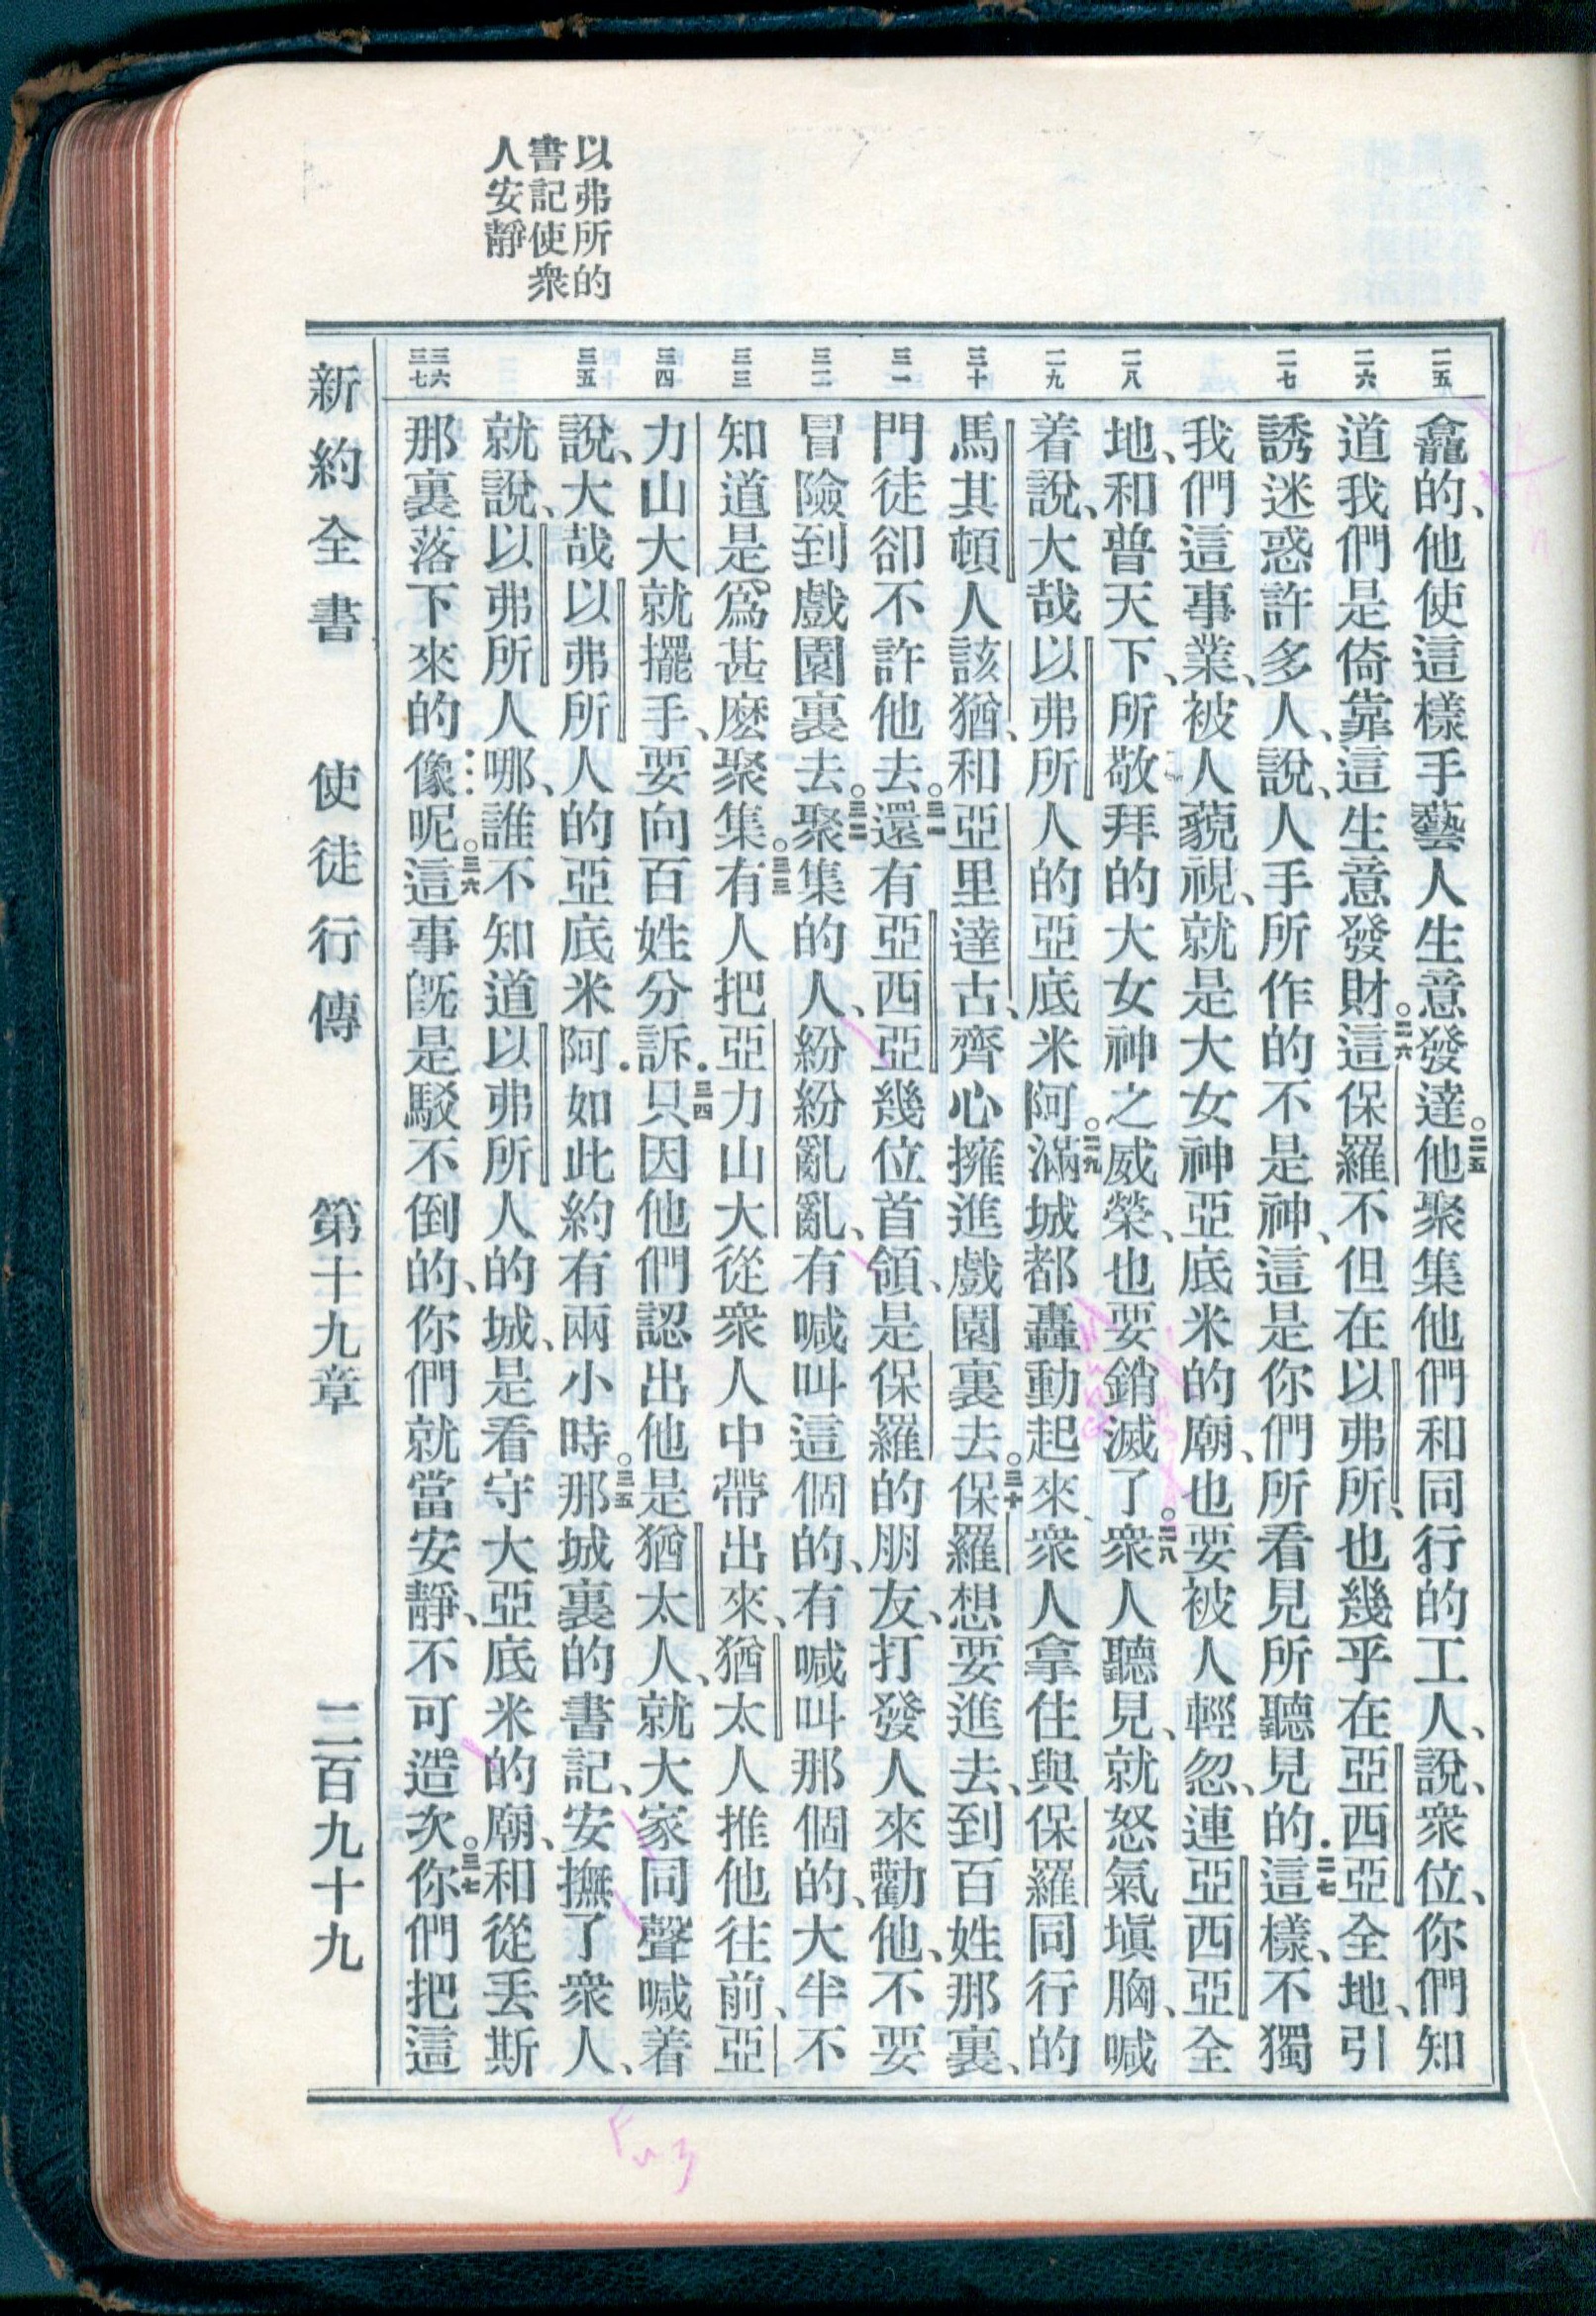 以弗所的
書記使衆
人安靜
二五
二六
二七
二八
二九
三十
三一
三二
三三
三四
三五
三六
三七
龕的、他使這樣手藝人生意發達。二五他聚集他們和同行的工人、說、衆位、你們知
道我們是倚靠這生意發財。二六這保羅不但在以弗所、也幾乎在亞西亞全地、引
誘迷惑許多人、說、人手所作的不是神、這是你們所看見所聽見的．二七這樣、不獨
我們這事業、被人藐視、就是大女神亞底米的廟、也要被人輕忽、連亞西亞全
地、和普天下、所敬拜的大女神之威榮、也要銷滅了。二八衆人聽見、就怒氣塡胸、喊
着說、大哉以弗所人的亞底米阿。二九滿城都轟動起來、衆人拿住與保羅同行的
馬其頓人該猶、和亞里達古、齊心擁進戲園裏去。三十保羅想要進去、到百姓那裏、
門徒卻不許他去。三一還有亞西亞幾位首領、是保羅的朋友、打發人來勸他、不要
冒險到戲園裏去。三二聚集的人、紛紛亂亂、有喊叫這個的、有喊叫那個的、大半不
知道是爲甚麼聚集。三三有人把亞力山大從衆人中帶出來、猶太人推他往前、亞
力山大就擺手、要向百姓分訴．三四只因他們認出他是猶太人、就大家同聲喊着
說、大哉以弗所人的亞底米阿．如此約有兩小時。三五那城裏的書記、安撫了衆人、
就說、以弗所人哪、誰不知道以弗所人的城、是看守大亞底米的廟、和從丟斯
那裏落下來的像呢。三六這事旣是駁不倒的、你們就當安靜、不可造次。三七你們把這
新約全書 使徒行傳 第十九章 二百九十九
Fu3